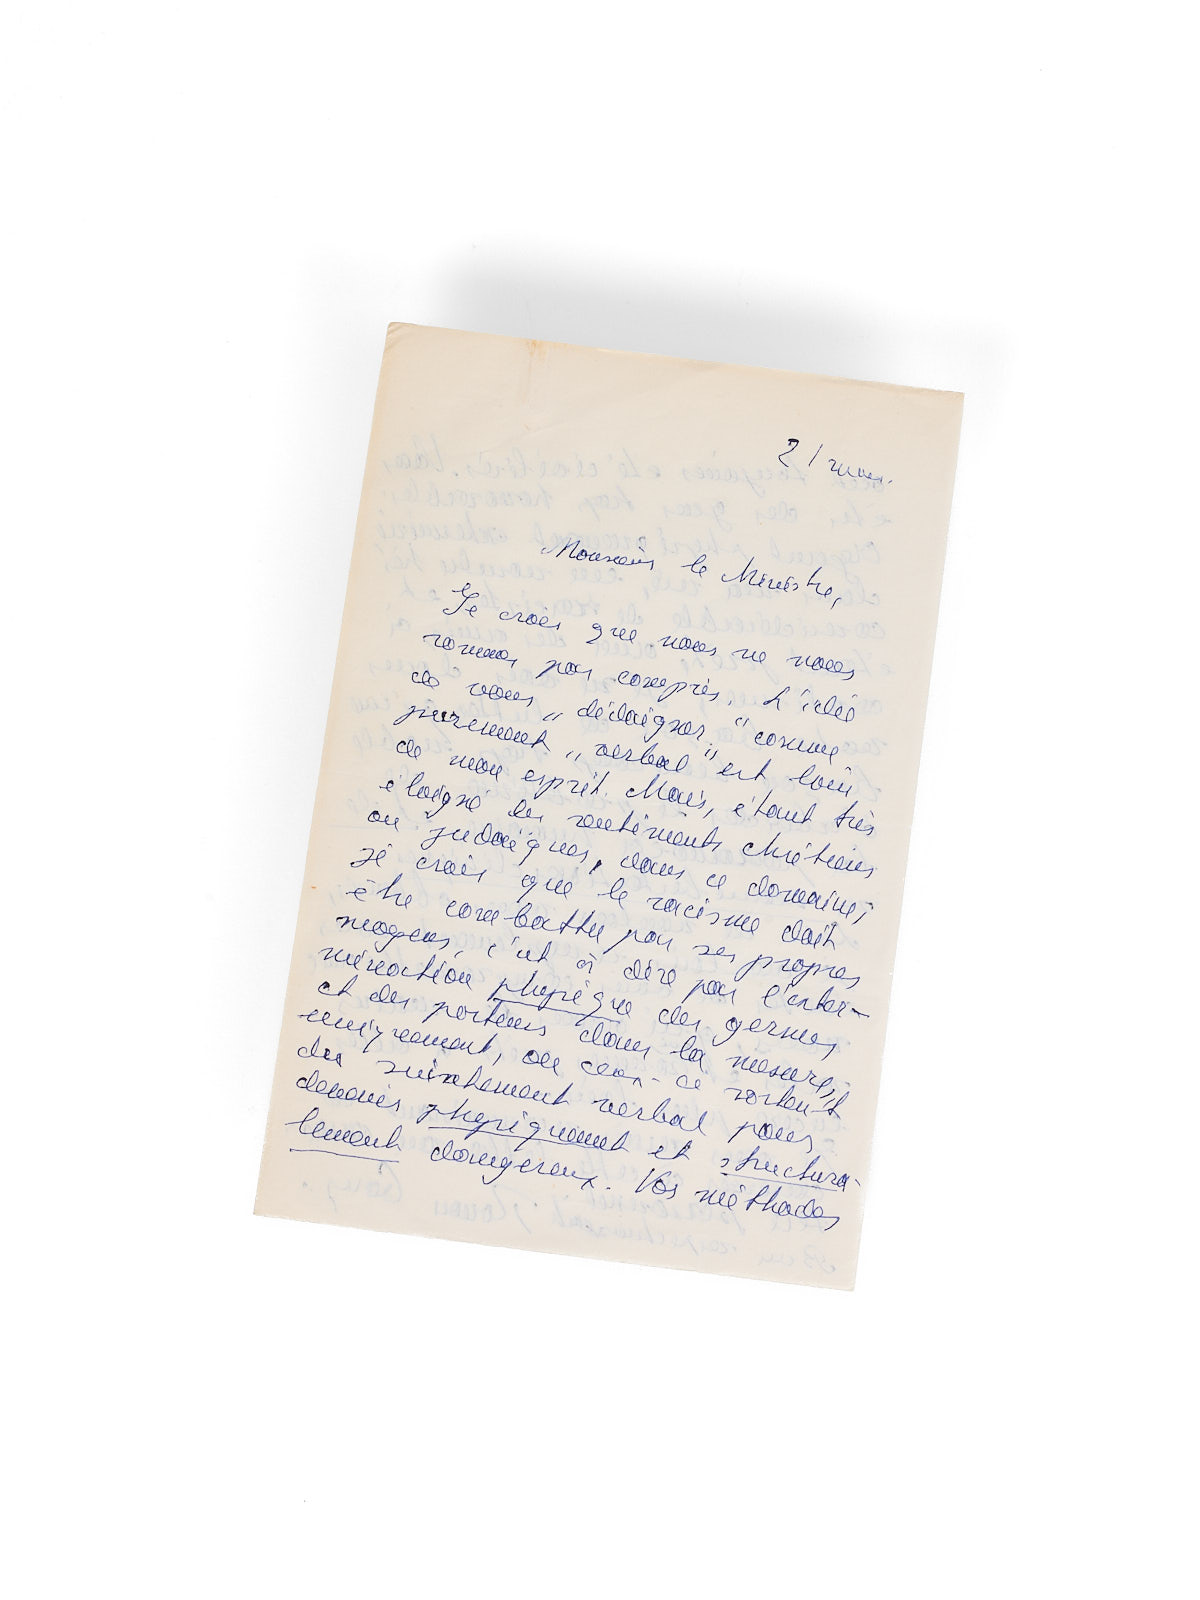 2 / mars.
Monsieur le Ministre,
Je crois que nous ne nous
sommes pas compris. L'idée
de vous "dédaigner" comme
purement "verbal" est loin
de mon esprit. Mais, étant très
éloigné des sentiments chrétiens
ou judaïques, dans ce domaine,
je crois que le racisme doit
être combattu par ses propres
moyens, c'est à dire par l'exter-
mination physique des germes
et des porteurs dans la mesure,
uniquement, où ceux-ci sortent
du suintement verbal pour
devenir physiquement et structura-
lement dangereux. Vos méthodes